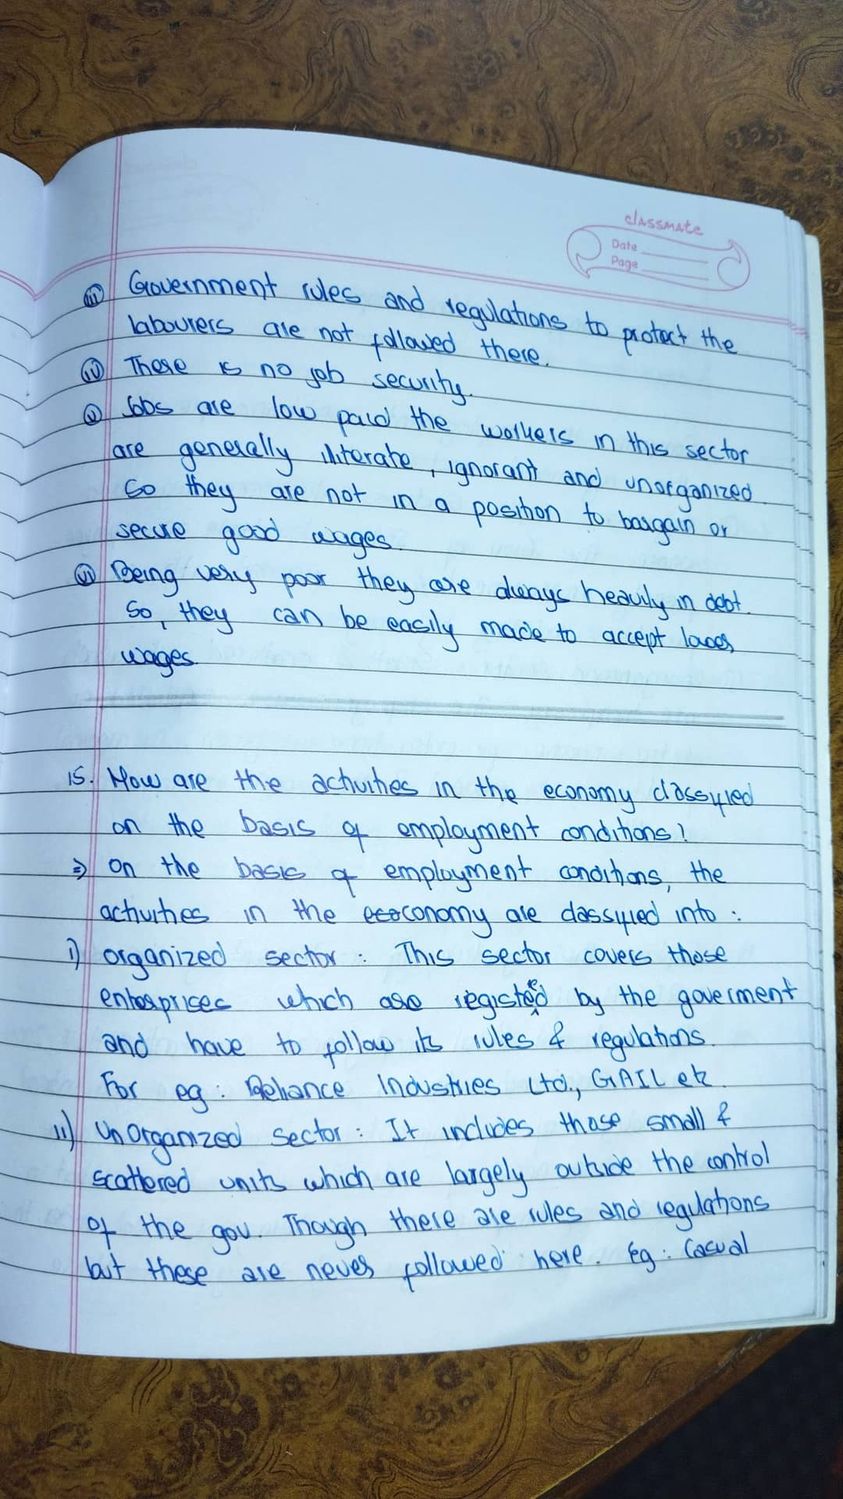 classmate
Date
Page
iii) Government rules and regulations to protect the
labourers are not followed there.
iv) There is no job security.
v) Jobs are low paid the workers in this sector
are generally illiterate, ignorant and unorganized
So they are not in a position to bargain or
secure good wages.
vi) Being very poor they are always heavily in debt.
So, they can be easily made to accept lower
wages.
15. How are the activities in the economy classified
on the basis of employment conditions?
=) on the basis of employment conditions, the
activities in the economy are classified into :
i) organized sector : This sector covers those
enterprises which are registered by the goverment
and have to follow its rules & regulations.
For eg : Reliance Industries Ltd., GAIL etc
ii) UnOrganized sector : It includes those small &
scattered units which are largely outside the control
of the gov. Though there are rules and regulations
but these are never followed here. Eg : Casual